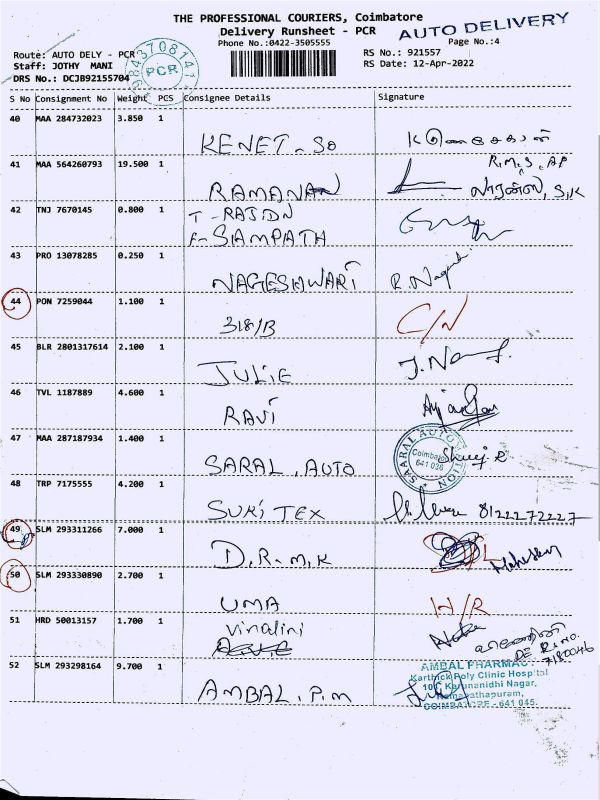 THE PROFESSIONAL COURIERS, Coimbatore
Delivery Runsheet - PCR
AUTO DELIVERY
Phone No.:0422-3505555
Page No.:4
Route: AUTO DELY - PCR
RS No.: 921557
Staff: JOTHY MANI
RS Date: 12-Apr-2022
DRS No.: DCJB92155704
9843708141
PCR
S No Consignment No Weight PCS Consignee Details Signature
40 MAA 284732023 3.850 1
KENET - SO
41 MAA 564260793 19.500 1
R.M.S, AP
RAMANAN
லாரன்ஸ், S.K
42 TNJ 7670145 0.800 1
T - RAJDN
F - SIAMPATH
43 PRO 13078285 0.250 1
NAGESHWARI R. Nagesh
44 PON 7259044 1.100 1
318/B C/N
45 BLR 2801317614 2.100 1
JULIE
46 TVL 1187889 4.600 1
RAVI
47 MAA 287187934 1.400 1
SARAL, AUTO
SAARAL AUTO
Coimbatore
641 036
48 TRP 7175555 4.200 1
SURI TEX 8122272227
49 SLM 293311266 7.000 1
D.R.M.K
50 SLM 293330890 2.700 1
UMA H/R
51 HRD 50013157 1.700 1
Vinalini
DE R. No.
7180046
52 SLM 293298164 9.700 1
AMBAL. P.M
AMBAL PHARMACY
Karthick Poly Clinic Hospital
10C Karunanidhi Nagar,
Ramanathapuram,
COIMBATORE - 641 045.